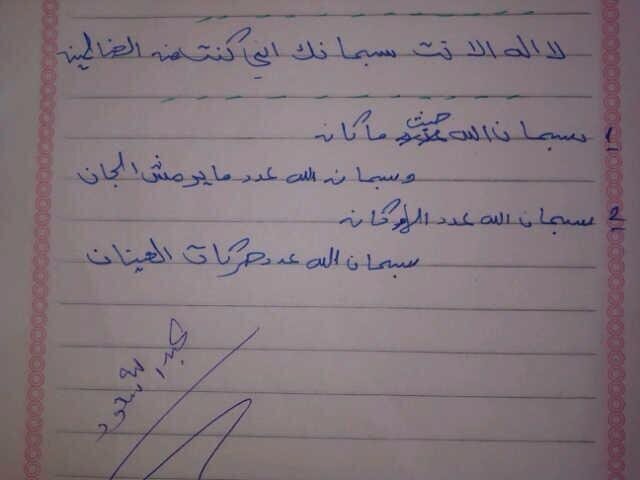 لا اله الا نت سبحانك اني كنت من الضالمين
1 سبحان الله حيث ما كان
وسبحان الله عدد ما يرمش الجان
2 سبحان الله عدد الاركان
سبحان الله عدد حركات العينان